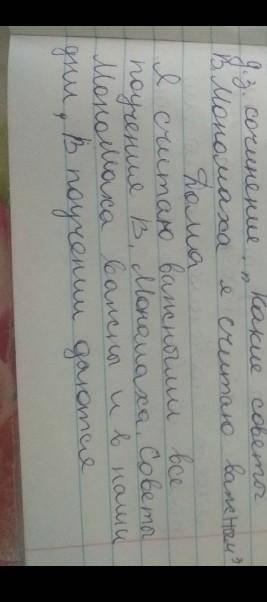 д.з. сочинение „Какие советы
В. Мономаха я считаю важным"
Дома
Я считаю важными все
поучения В. Мономаха. Советы
Мономаха важны и в наши
дни, В поучении даются